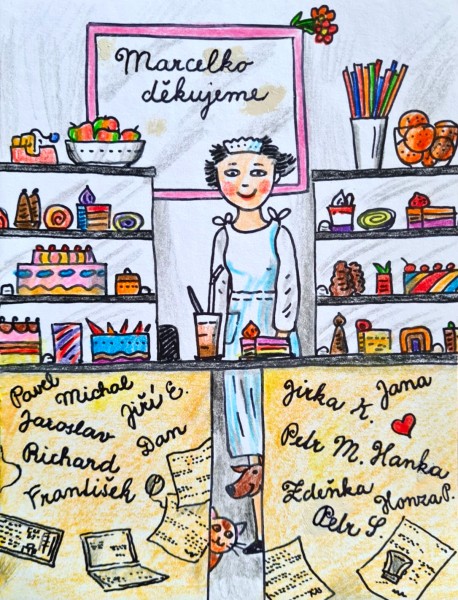 Marcelko
děkujeme
Pavel
Michal
Jiří E.
Jaroslav
Dan
Richard
František
Jirka K.
Jana
Petr M.
Hanka
Zdeňka
Honza P.
Petr S